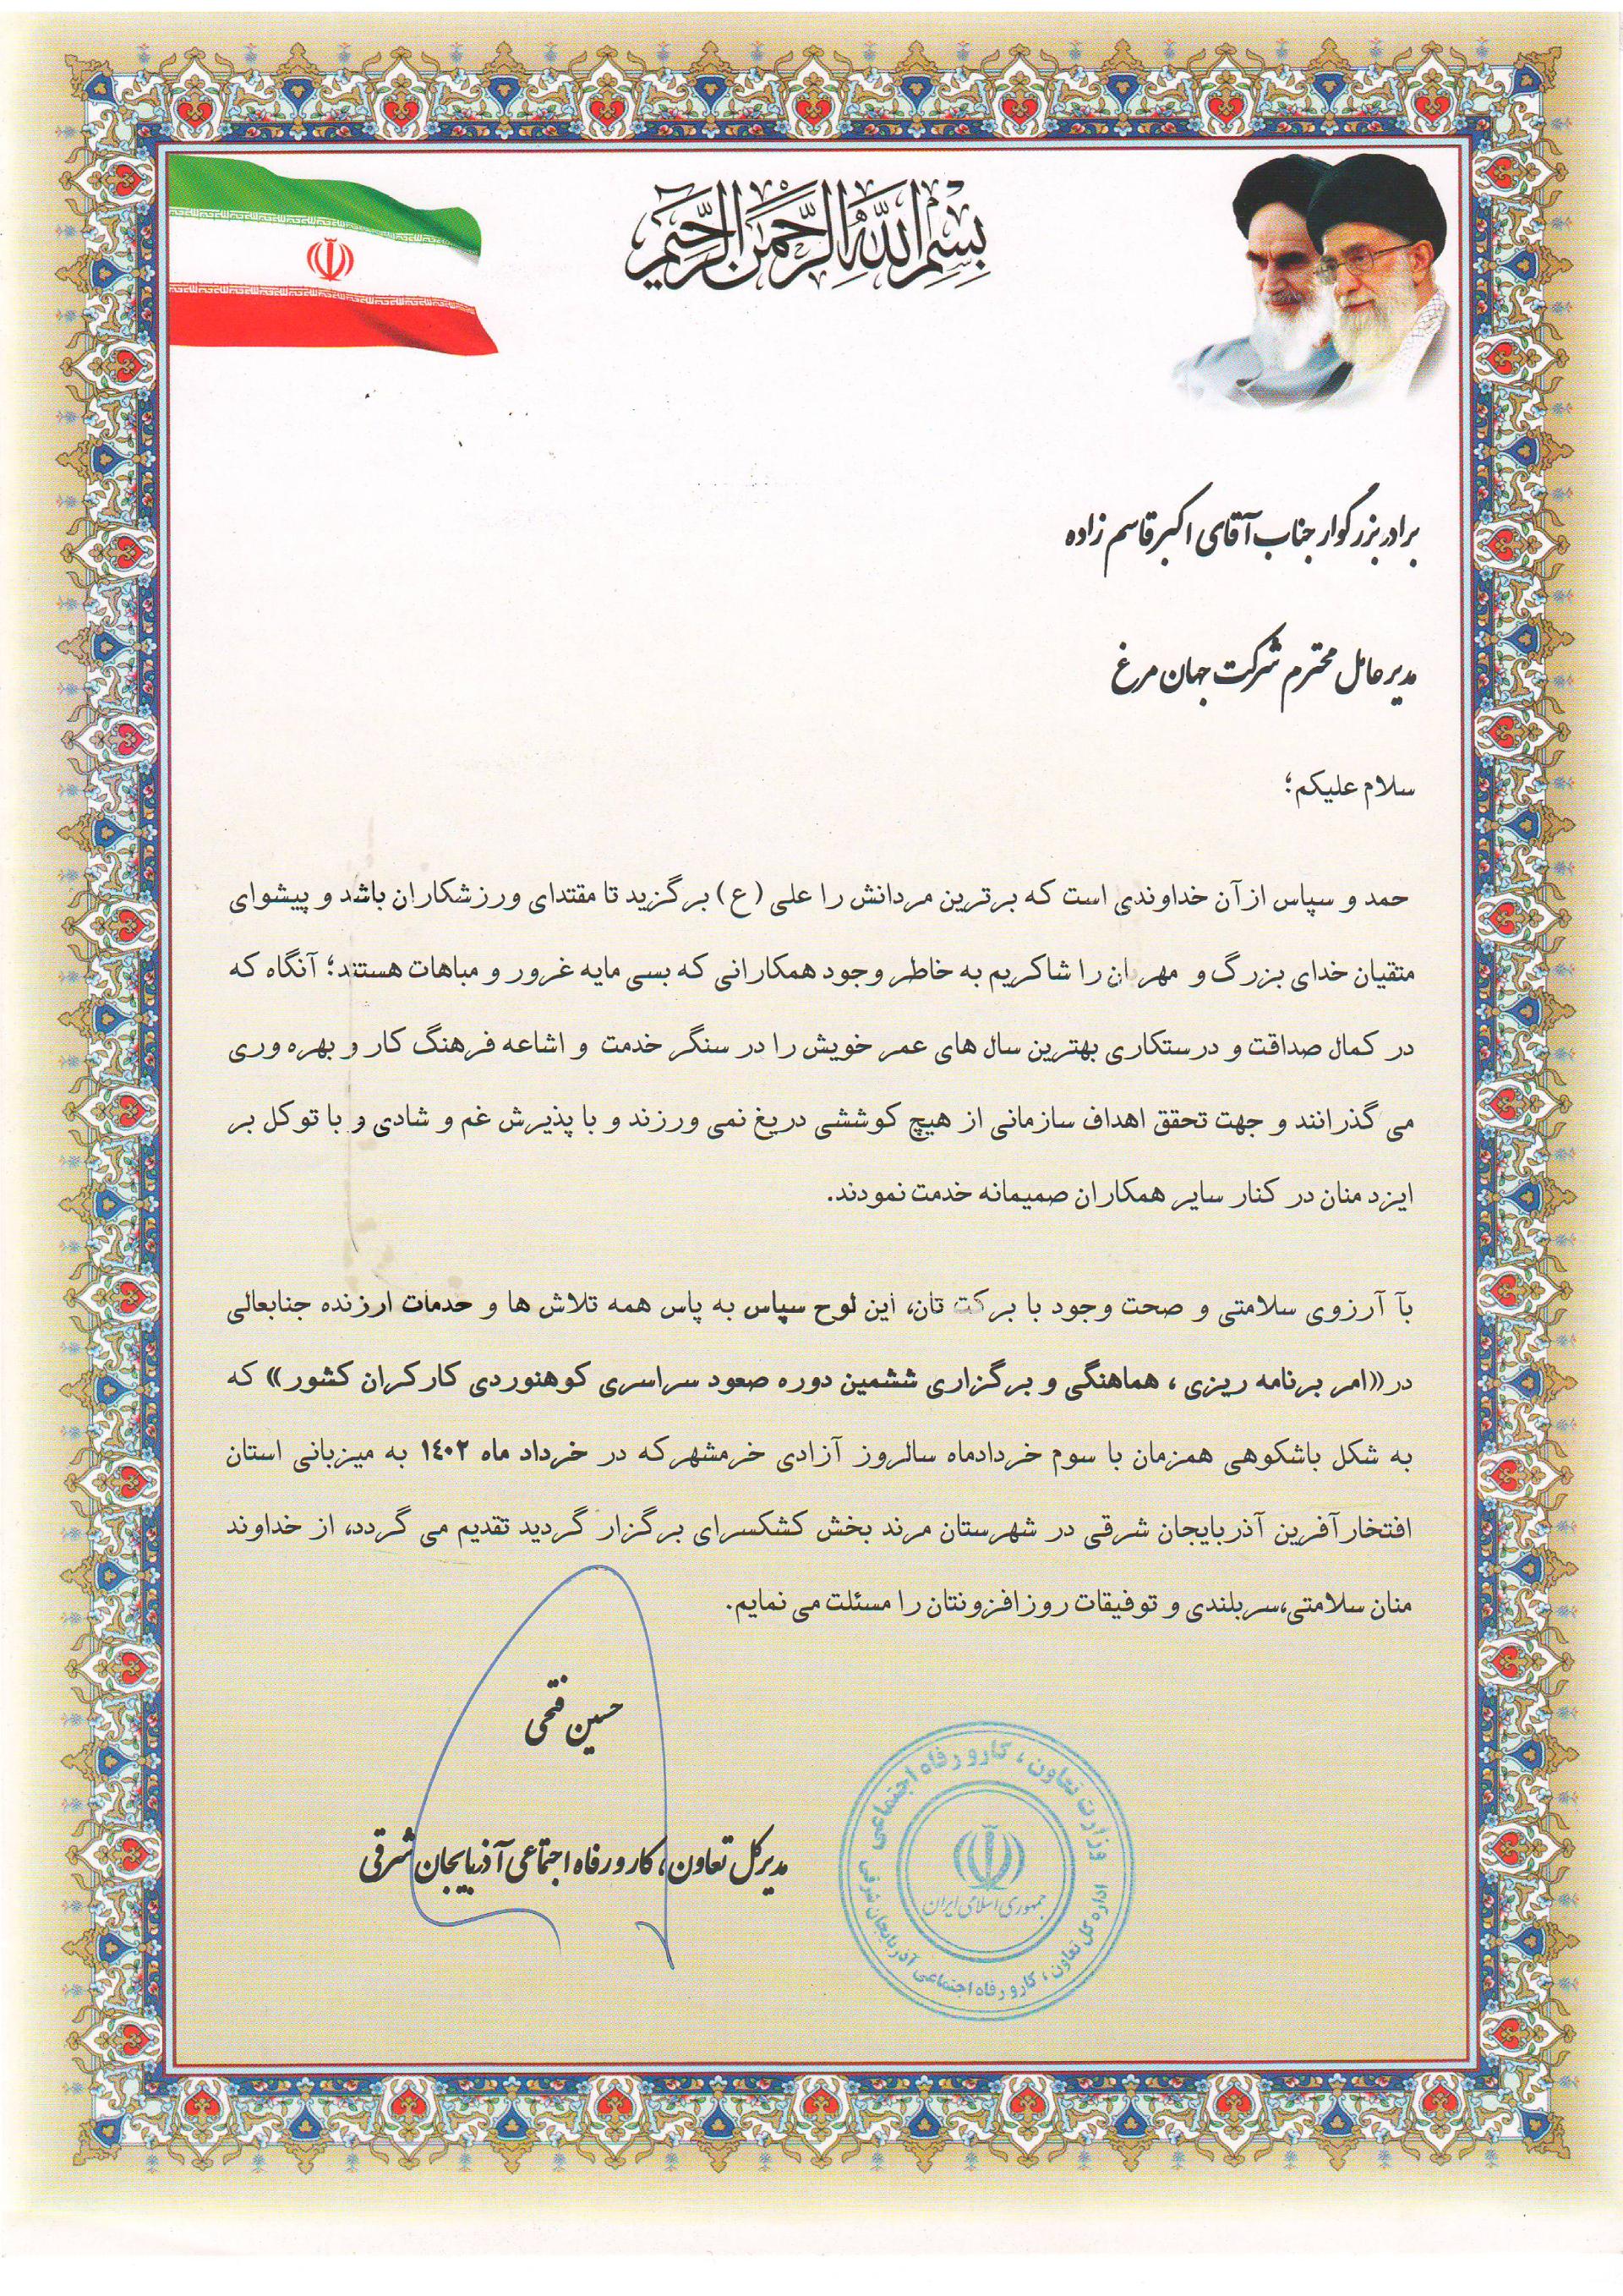 بِسْمِ اللَّهِ الرَّحْمَنِ الرَّحِيم
برادر بزرگوار جناب آقای اکبر قاسم زاده
مدیرعامل محترم شرکت جهان مرغ
سلام علیکم؛
حمد و سپاس ازآن خداوندی است که برترین مردانش را علی (ع) برگزید تا مقتدای ورزشکاران باشد و پیشوای
متقیان خدای بزرگ و مهربان را شاکریم به خاطر وجود همکارانی که بسی مایه غرور و مباهات هستند؛ آنگاه که
در کمال صداقت و درستکاری بهترین سال های عمر خویش را در سنگر خدمت و اشاعه فرهنگ کار و بهره وری
می گذرانند و جهت تحقق اهداف سازمانی از هیچ کوششی دریغ نمی ورزند و با پذیرش غم و شادی و با توکل بر
ایزد منان در کنار سایر همکاران صمیمانه خدمت نمودند.
بآ آرزوی سلامتی و صحت وجود با برکت تان، این لوح سپاس به پاس همه تلاش ها و خدمات ارزنده جنابعالی
در«امر برنامه ریزی ، هماهنگی و برگزاری ششمین دوره صعود سراسری کوهنوردی کارکران کشور» که
به شکل باشکوهی همزمان با سوم خردادماه سالروز آزادی خرمشهرکه در خرداد ماه ۱٤۰۲ به میزبانی استان
افتخارآفرین آذربایجان شرقی در شهرستان مرند بخش کشکسرای برگزار گردید تقدیم می گردد، از خداوند
منان سلامتی،سربلندی و توفیقات روزافزونتان را مسئلت می نمایم.
حسین فتحی
مدیرکل تعاون، کار و رفاه اجتماعی آذربایجان شرقی
وزارت تعاون ، کار و رفاه اجتماعی
جمهوری اسلامی ایران
اداره کل تعاون ، کار و رفاه اجتماعی آذربایجان شرقی